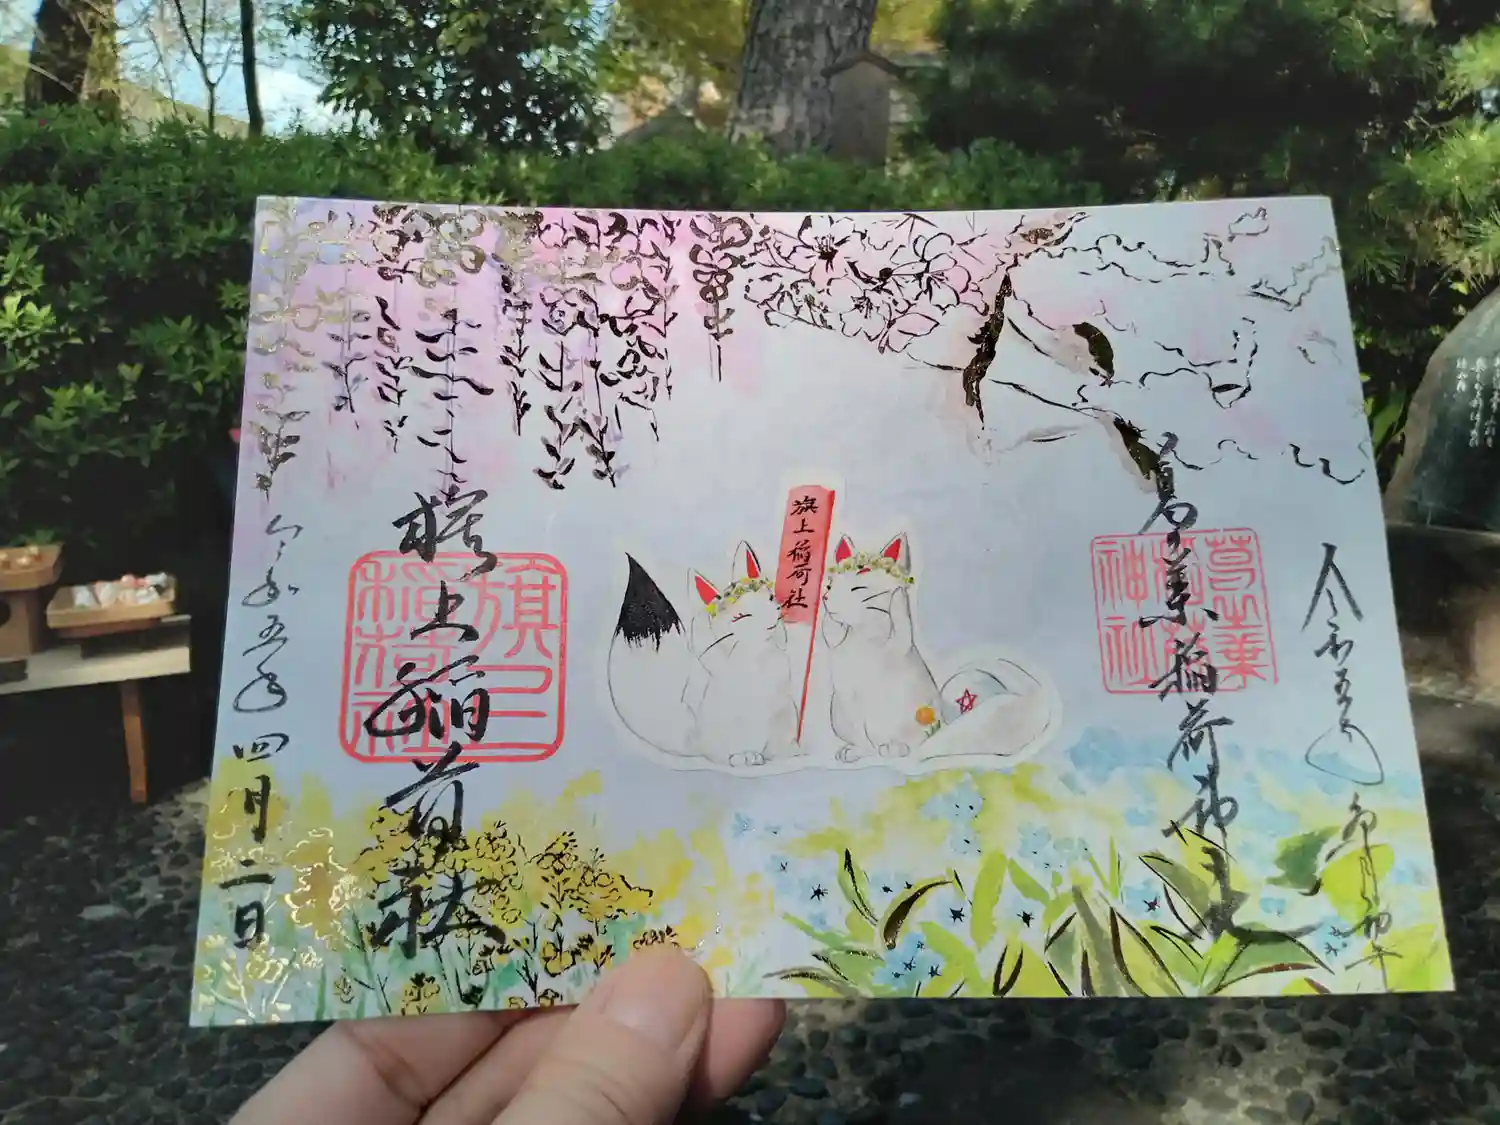 令和五年 卯月初午
葛之葉稲荷神社
葛之葉
稲荷
神社
旗上稲荷社
旗上稲荷社
旗上
稲荷社
令和五年四月二日